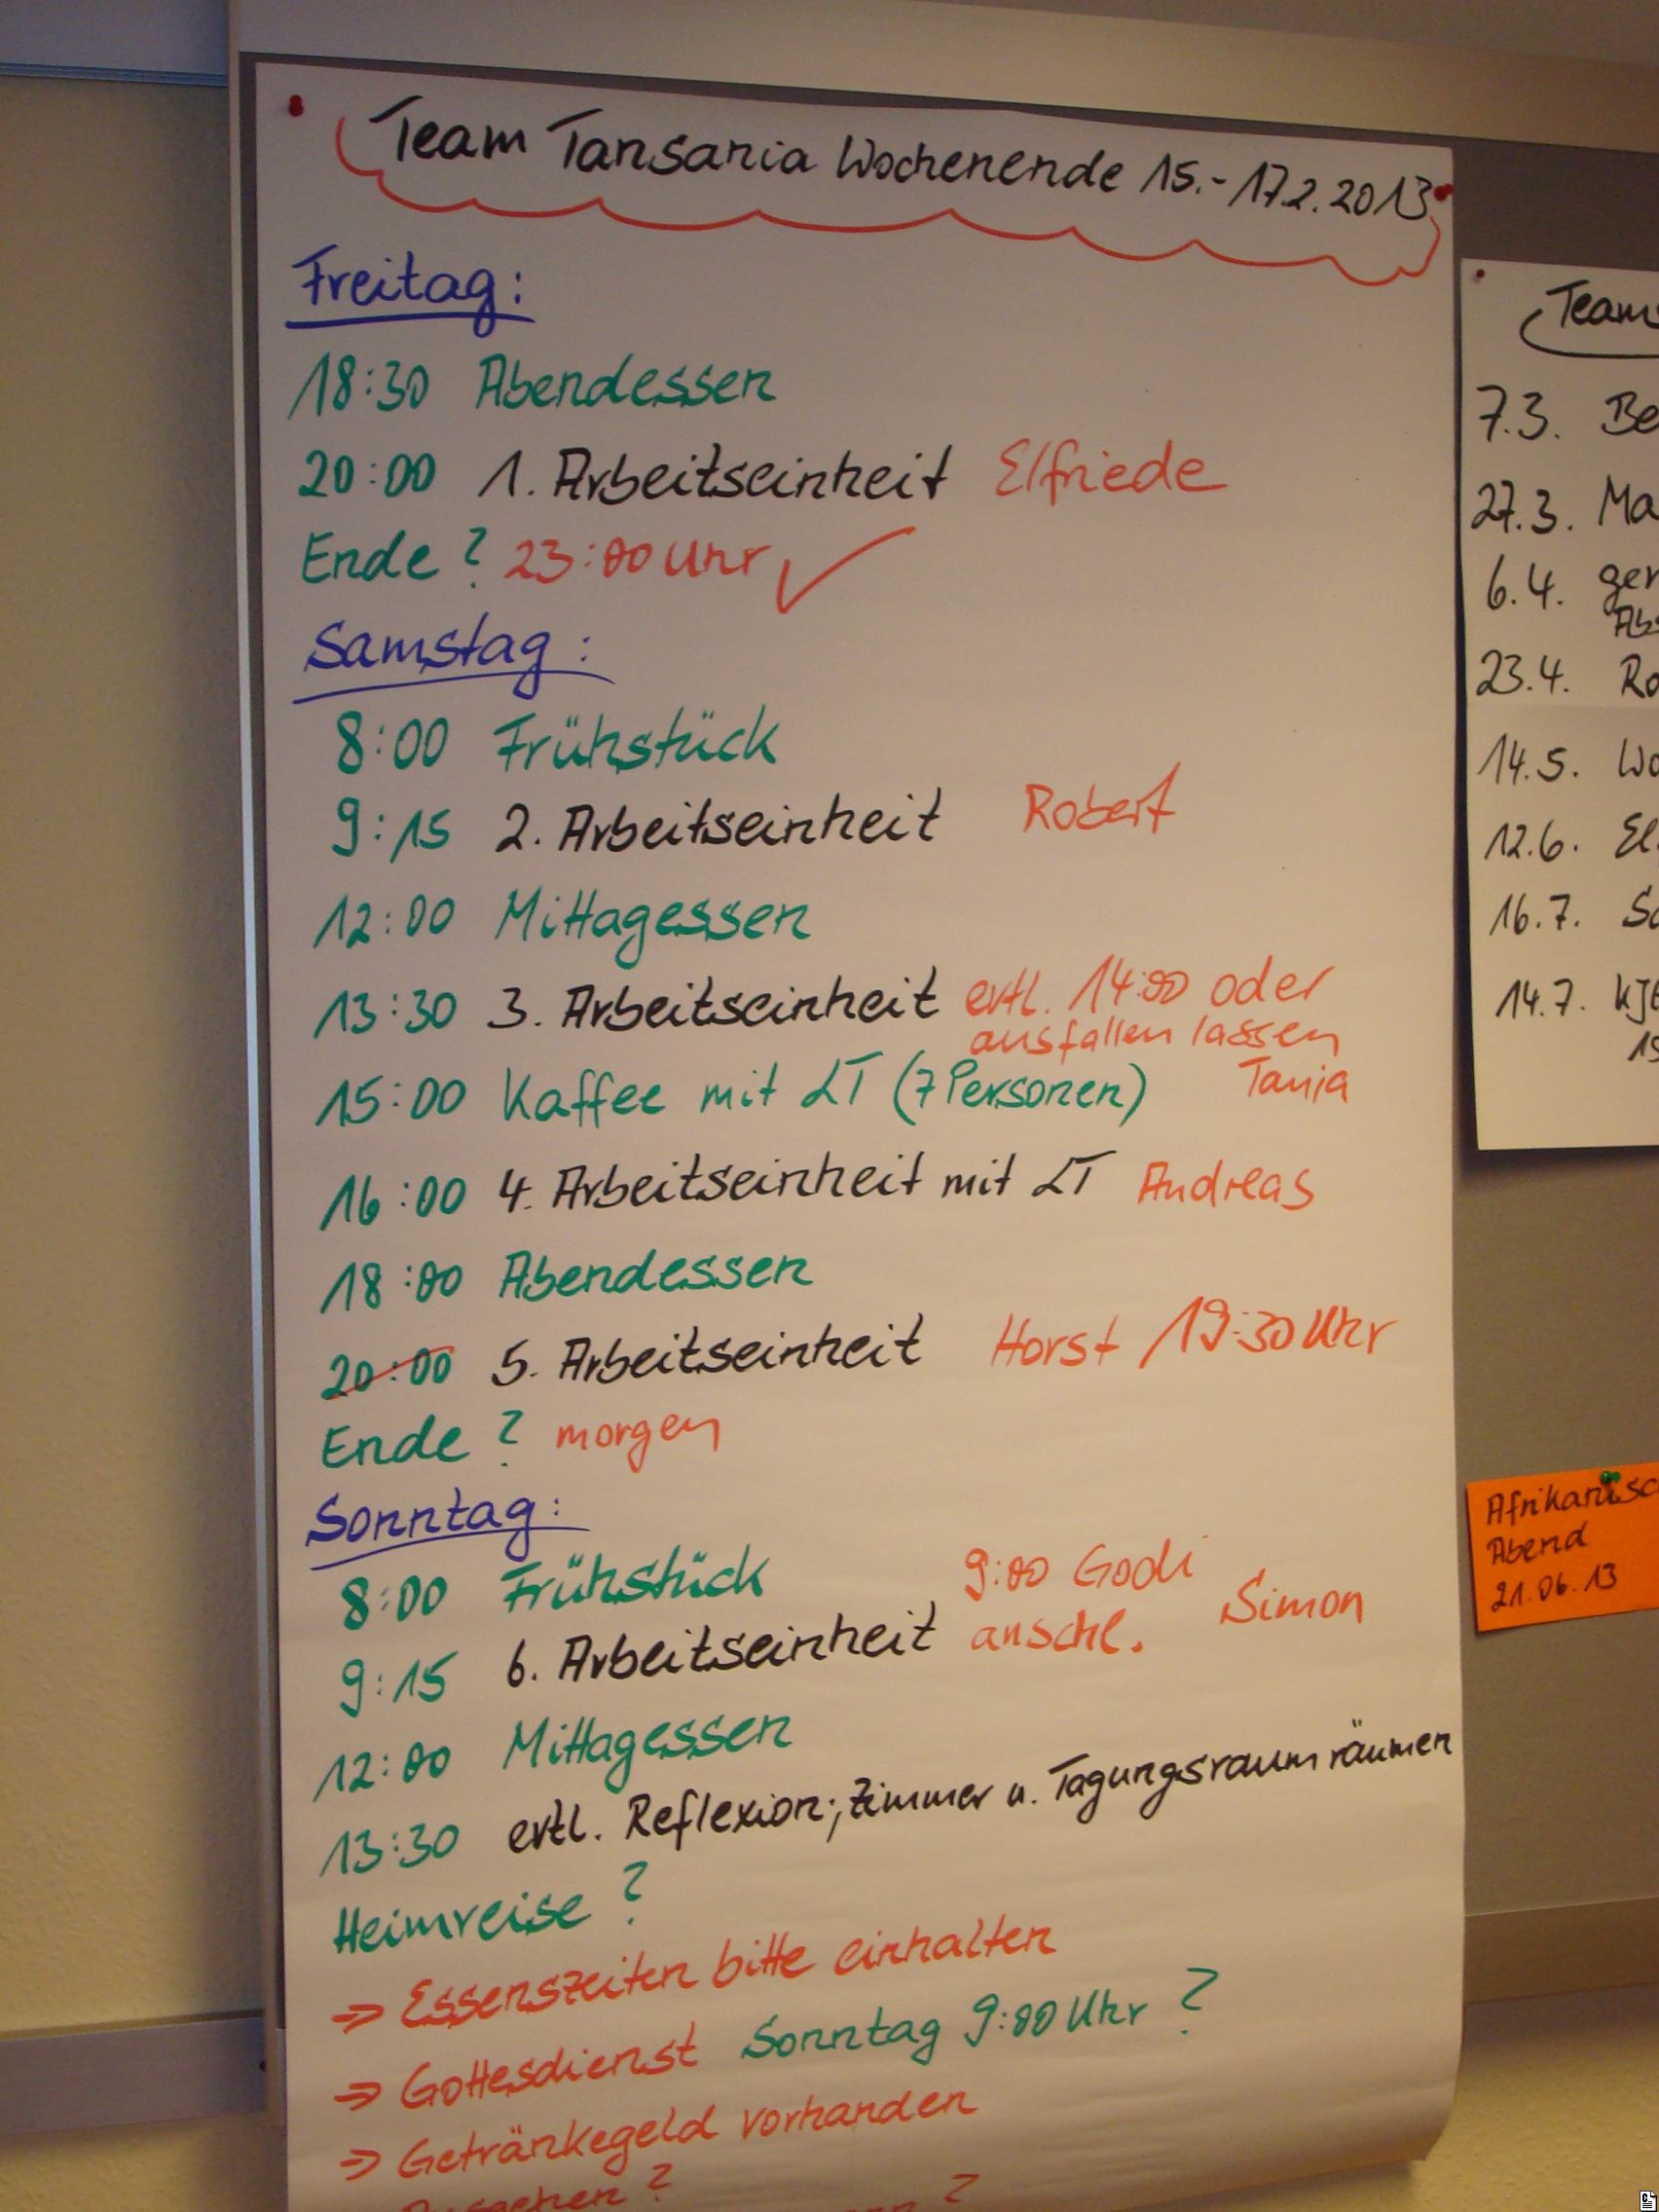 Team Tansania Wochenende 15.-17.2.2013
Freitag:
18:30 Abendessen
20:00 1. Arbeitseinheit Elfriede
Ende? 23:00 Uhr ✓
Samstag:
8:00 Frühstück
9:15 2. Arbeitseinheit Robert
12:00 Mittagessen
13:30 3. Arbeitseinheit evtl. 14:00 oder
ausfallen lassen
15:00 Kaffee mit LT (7 Personen) Tanja
16:00 4. Arbeitseinheit mit LT Andreas
18:00 Abendessen
20:00 5. Arbeitseinheit Horst 19:30 Uhr
Ende? morgen
Sonntag:
8:00 Frühstück 9:00 Godi
9:15 6. Arbeitseinheit anschl. Simon
12:00 Mittagessen
13:30 evtl. Reflexion; Zimmer u. Tagungsraum räumen
Heimreise?
=> Essenszeiten bitte einhalten
=> Gottesdienst Sonntag 9:00 Uhr?
=> Getränkegeld vorhanden
Teams
7.3. Be
27.3. Ma
6.4. ger
Abs
23.4. Ro
14.5. Wo
12.6. El
16.7. So
14.7. KJ
Afrikanisc
Abend
21.06.13